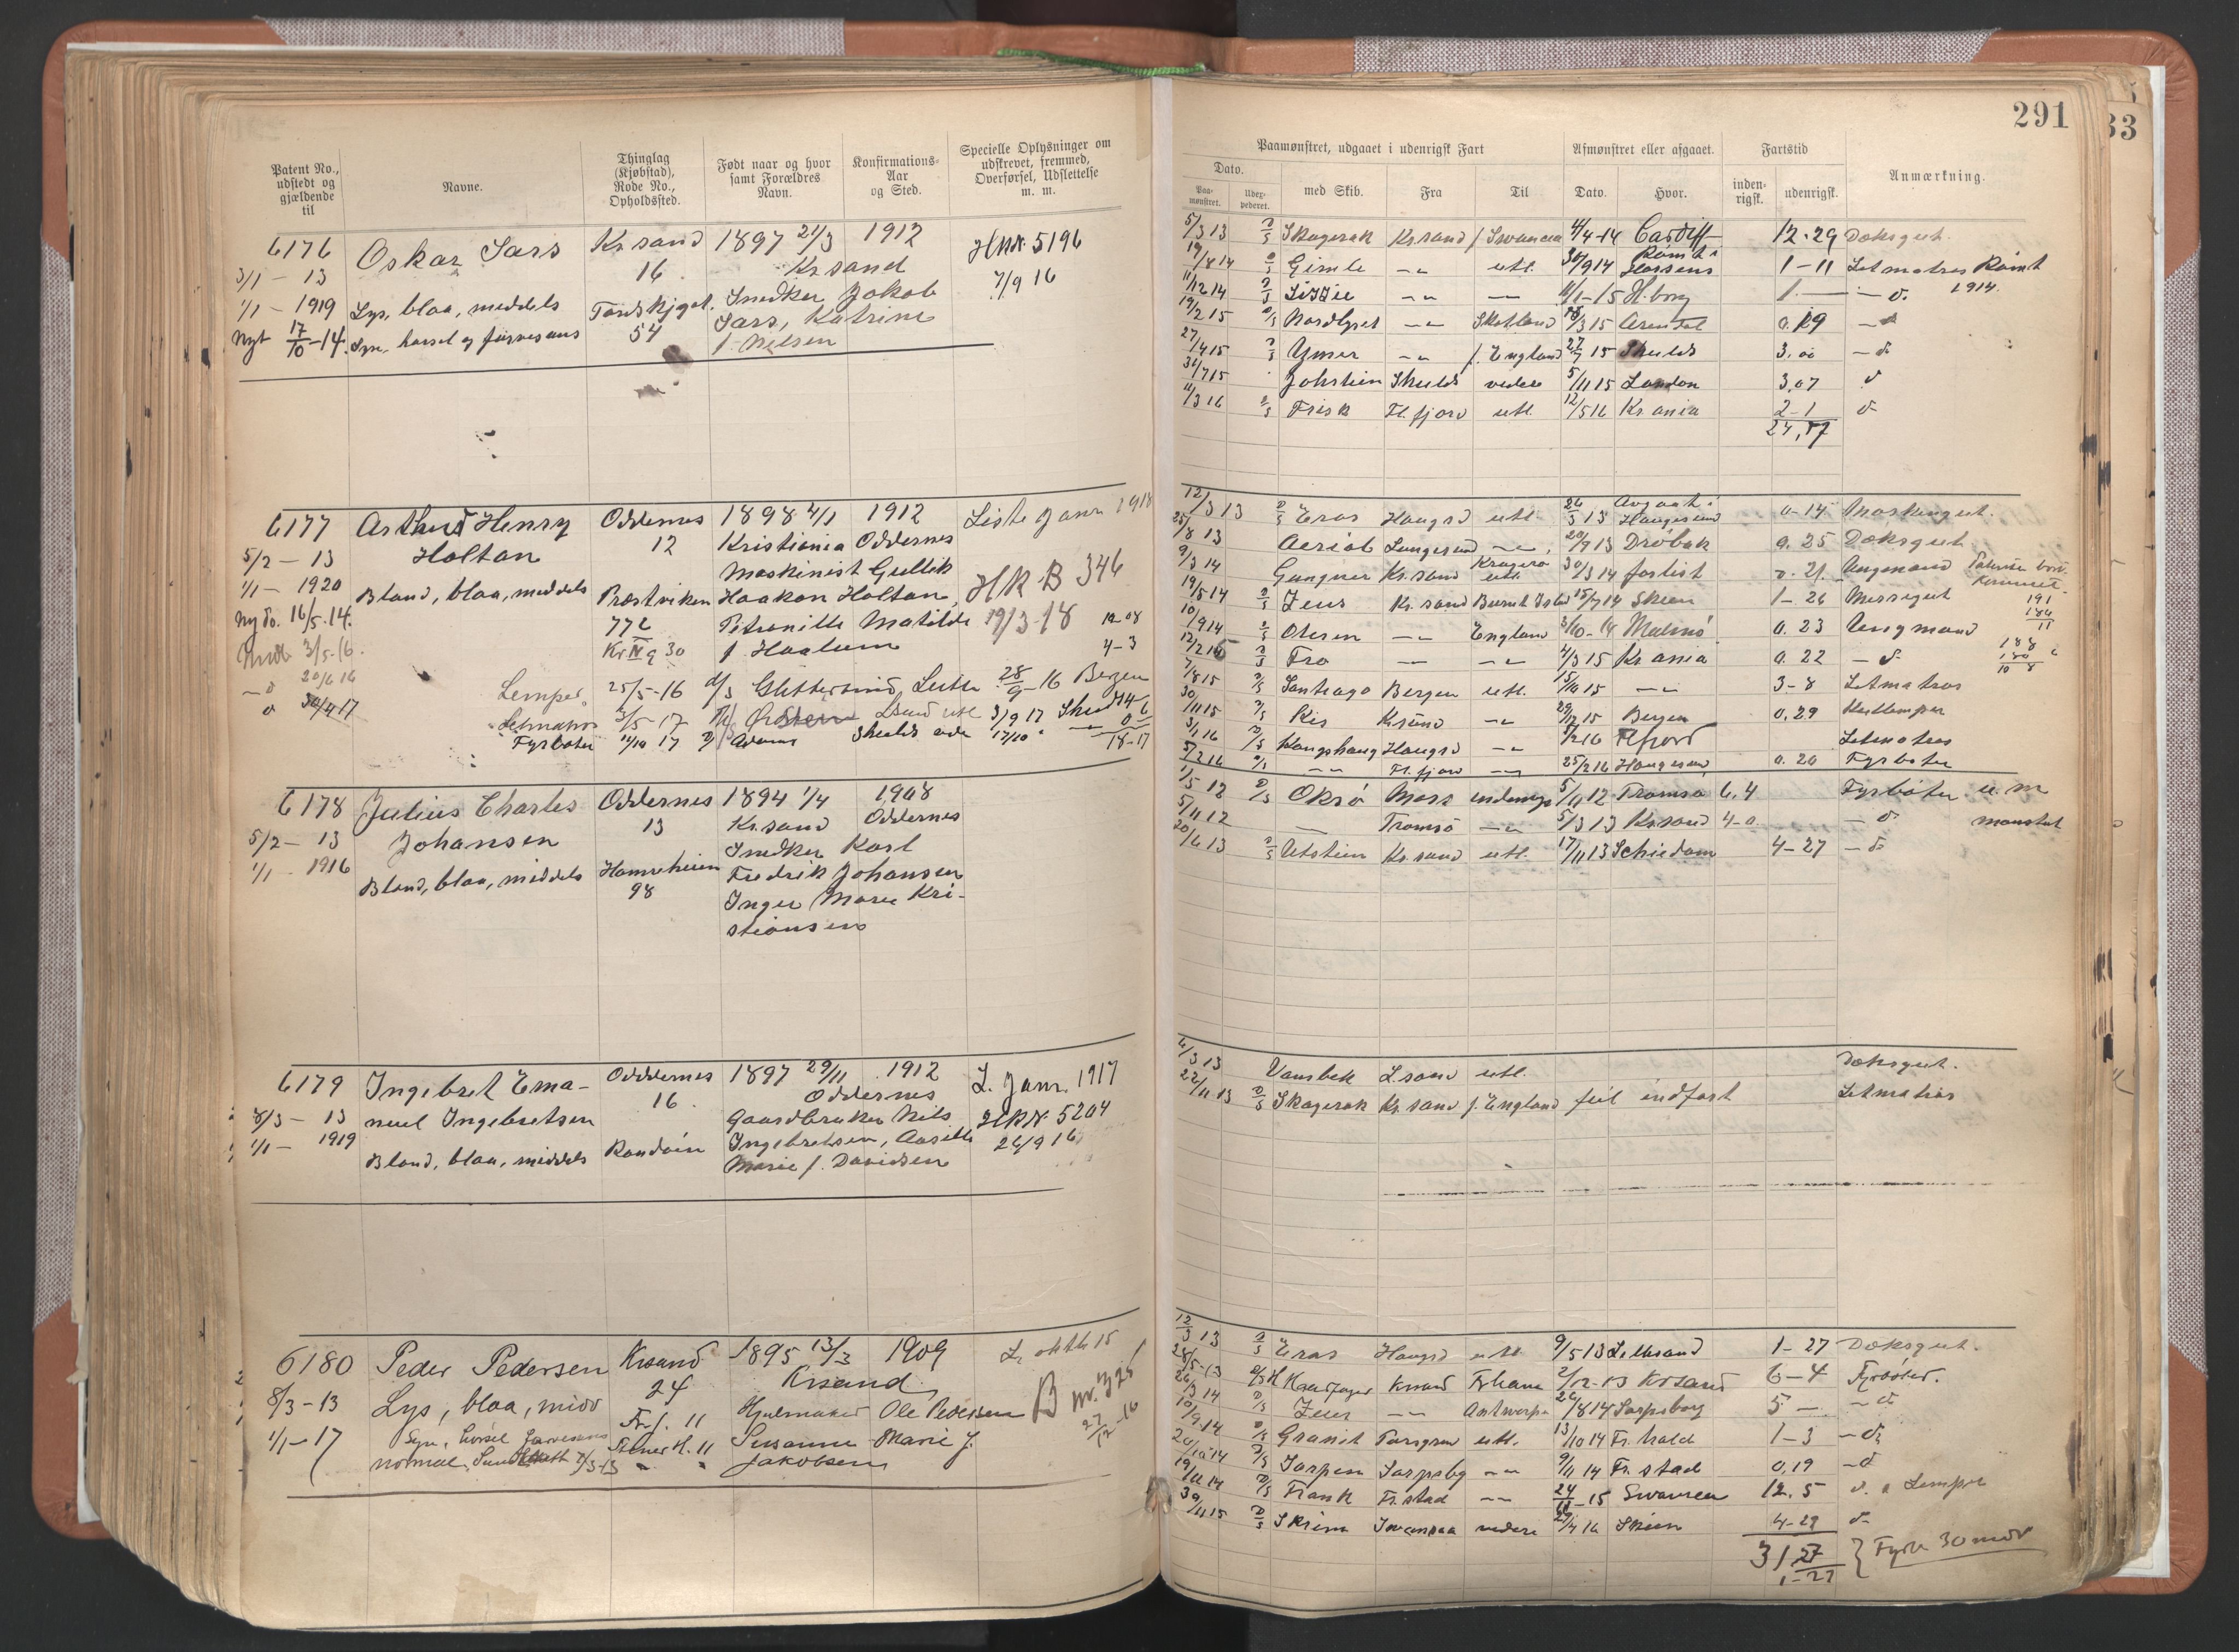 291
33
Patent No., udstedt og gjældende til
Navne.
Thinglag (Kjøbstad), Rode No., Opholdssted.
Født naar og hvor samt Forældres Navn.
Konfirmations- Aar og Sted.
Specielle Oplysninger om udskrevet, fremmed, Overførsel, Udslettelse m. m.
Paamønstret, udgaaet i udenrigsk Fart
Afmønstret eller afgaaet.
Fartstid
Anmærkning.
Dato.
Paa- mønstret.
med Skib.
Fra
Til
Dato.
Hvor.
inden- rigsk.
udenrigsk.
6176 Oskar Sars Kr.sand 1897 21/3 1912 HRN. 5196
3/1 - 13 16 Kr sand 7/9 16
1/1 - 1919 Lys, blaa, middels Snedker Jakob
Nyt 17/10 - 14. Syn, hørsel og farvesans 54 Sars, Katrine
f. Nilsen
5/3 13 D/S Skagerak Kr.sand f. Swansea 4/4-14 Cardiff 12-29 Dæksgut
19/8 14 D/S Gimle — utl. 30/9 14 Rømt i Horsens 1-11 Letmatros Rømt 1914.
11/12 14 D/S — — 11/1-15 H.borg 1 — — d.
19/2 15 D/S Nordlyset — Skotland 18/3 15 Arendal 0.29 — d
27/4 15 D/S Ymer — f. England 27/7 15 Shields 3.00 — d
30/7 15 Johstein Shields videre 5/11 15 London 3.07 d
11/3 16 D/S Frisk Fl. fjord utl 12/5 16 Kr.ania 2-1 d
24,17
6177 Arthur Henry Oddernes 1898 4/1 1912 Liste Janr 1918
5/2 - 13 Holtan 12 Kristiania Oddernes
1/1 - 1920 Blond, blaa, middels Maskinist Gullik HR. B 346
Ny do. 16/5-14. Prestviken Haakon Holtan, 19/3-18
772 Petronille Matilde 12-08
3/5-16. 30 f. Haalum 4-3
— d 20/6 16
d 30/4 17
Lemper, 25/5-16 D/S Glittertind, Leith 28/9-16 Bergen
Letmatros 3/5-17 utl 3/9 17
Fyrbøter 17 Adams Shields 17/10 18-17
12/3 13 D/S Eros Haugsd utl 26/3 13 Avgaat i Haugesund 0-14 Maskingut.
25/8 13 Aeriat Langesund — 20/9 13 Drøbak 0.25 Dæksgut
9/3 14 Gungner Kr.sand Kragerø utl. 30/3 14 forlist 0.21. Ungmand
19/5 14 D/S Zeus Kr.sand Burnt Isld 15/7 14 Skien 1-26 Messegut
10/9 14 D/S Otersen — England 3/10-14 Malmö 0.23 Ungmand
12/2 15 D/S Fro — — 4/3 15 Kr.ania 0.22 — d
191
180
11
188
180
10 8
7/8 15 D/S Santiago Bergen utl. 15/11 15 — 3-8 Letmatros
30/11 15 D/S Ris Krsand — 29/12 15 Bergen 0.29 Kullemper
3/1 16 D/S Kongshaug Haugsd — Fl.fjord Letmatros
5/2 16 D/S — Fl.fjord — 25/2 16 Haugesund, 0.20 Fyrbøter
6178 Julius Charles Oddernes 1894 1/4 1908
5/2 - 13 Johansen 13 Kr.sand Oddernes
1/1 - 1916 Blond, blaa, middels Hamreheien Snedker Karl
98 Fredrik Johansen
Inger Marie Kri-
stiansen
1/5 12 D/S Oksø Moss indenrgs 5/11 12 Tromsø 6.4 Fyrbøter u. m
5/11 12 — Tromsø — 5/3 13 Kr.sand 4-0 — d mønstret
20/6 13 D/S Utstein Kr.sand utl. 17/11 13 Schiedam 4-27 — d
6179 Ingebret Ema- Oddernes 1897 29/11 1912 L. Janr. 1917
8/3 - 13 nuel Ingebretsen 16 Oddernes
1/1 - 1919 Blond, blaa, middels Randøen Gaardbruker Nils HRN. 5204
Ingebretsen, Aasille 26/9 16
Marie f. Davidsen
6/3 13 Vansbek Lsand utl. Dæksgut.
22/11 13 D/S Skagerak Kr.sand f. England feil indført Letmatros
6180 Peder Pedersen Krsand 1895 13/3 1909 L. oktb 15
8/3-13 Lys, blaa, midd 24 Krsand B nr. 325
1/1-17 Syn, hørsel farvesans Fr.f. 11 Hjulmaker Ole Pedersen 27/12-16
normal. 7/3-13 H. 11 Susanne Marie f.
Jakobsen
12/3 13 D/S Eros Haugsd utl 9/5 13 Lillesand 1-27 Dæksgut.
28/5-13 D/S H Haarfager Krsand 2/12-13 Krsand 6-4 Fyrbøter.
26/3 14 D/S Zeus — Antwerpn 26/8 14 Sarpsborg 5 — — d
10/9 14 D/S Granit Porsgrun utl. 13/10 14 Fr.hald 1-3 — d
20/10 14 D/S Sarpen Sarpsbg — 9/11 14 Fr.stad 0.19 — d
19/11 14 D/S Frank Fr.stad — 24/11-15 Swansea 12.5 d. o Lemper
30/11 15 D/S Skrim Swansea videre 29/4 16 Skien 4-29 d
31 27 } Fyrb 30 mdr
1-27